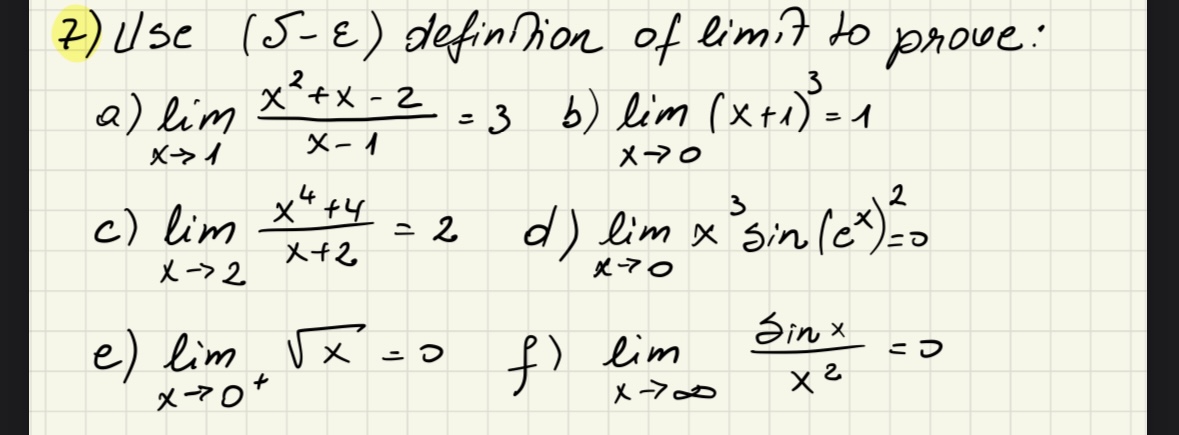 7) Use (δ-ε) definition of limit to prove:
a) lim x→1 (x²+x-2)/(x-1) = 3 b) lim x→0 (x+1)³ = 1
c) lim x→2 (x⁴+4)/(x+2) = 2 d) lim x→0 x³ sin(eˣ)² = 0
e) lim x→0⁺ √x = 0 f) lim x→∞ sin x / x² = 0